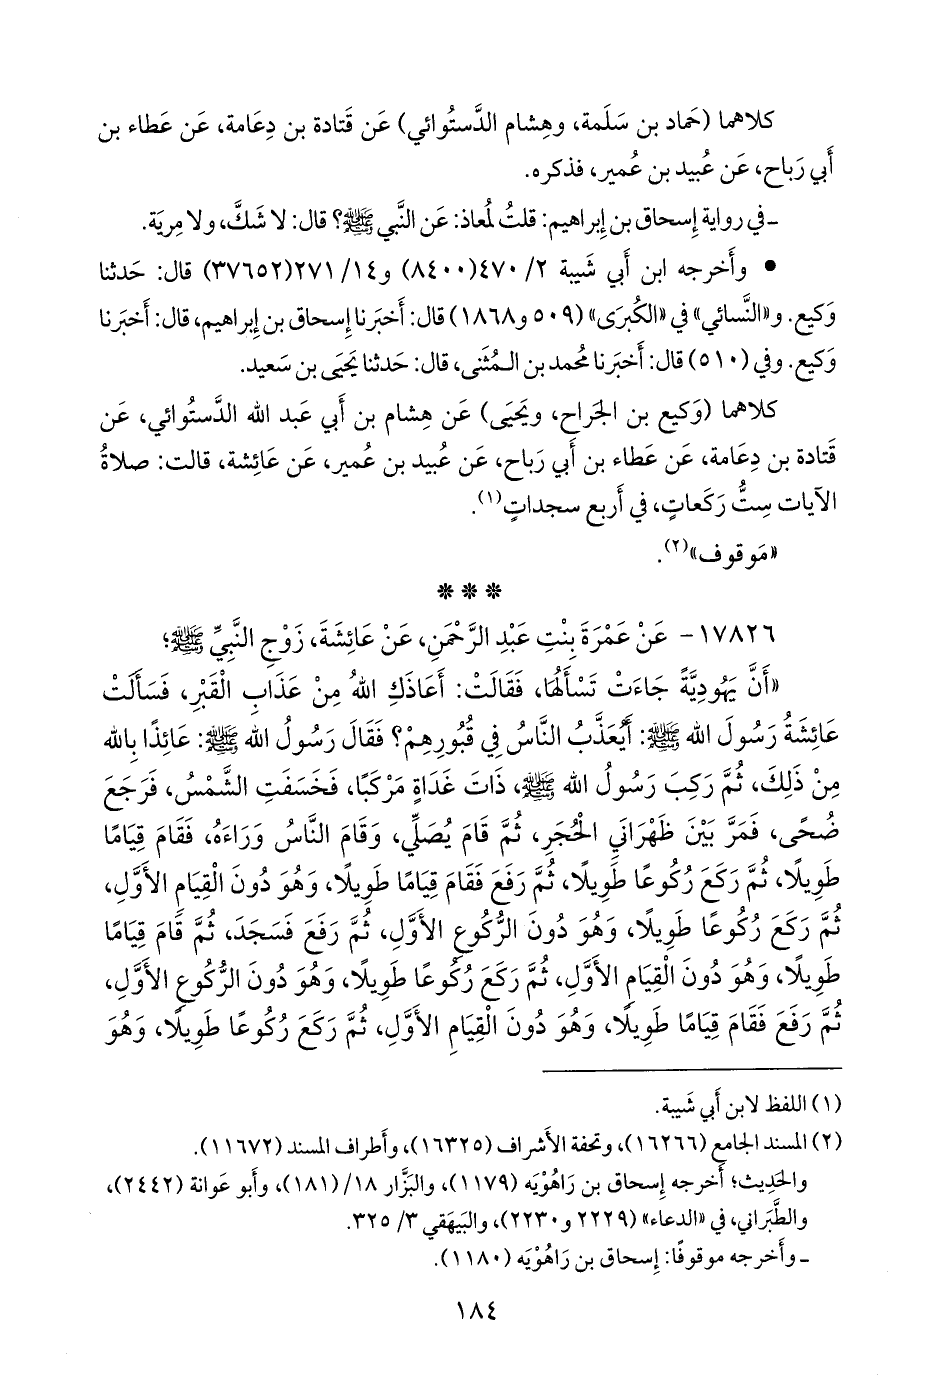 كلاهما (حَماد بن سَلَمة، وهِشام الدَّستُوائي) عَن قَتادة بن دِعَامة، عَن عَطاء بن
أَبي رَباح، عَن عُبيد بن عُمير، فذكره.
ـ في رواية إِسحاق بن إِبراهيم: قلتُ لمُعاذ: عَن النَّبي ﷺ؟ قال: لا شَكَّ، ولا مِرية.
• وأَخرجه ابن أَبي شَيبة ٢/ ٤٧٠(٨٤٠٠) و١٤/ ٢٧١(٣٧٦٥٢) قال: حَدثنا
وَكيع. و«النَّسائي» في «الكُبرَى» (٥٠٩ و١٨٦٨) قال: أَخبَرنا إِسحاق بن إِبراهيم، قال: أَخبَرنا
وَكيع. وفي (٥١٠) قال: أَخبَرنا مُحمد بن الـمُثَنى، قال: حَدثنا يَحيَى بن سَعيد.
كلاهما (وَكيع بن الجَراح، ويَحيَى) عَن هِشام بن أَبي عَبد الله الدَّستُوائي، عَن
قَتادة بن دِعَامة، عَن عَطاء بن أَبي رَباح، عَن عُبيد بن عُمير، عَن عَائِشة، قالت: صلاةُ
الآيات سِتُّ رَكَعاتٍ، في أَربع سجداتٍ(١).
«مَوقوف»(٢).
* * *
١٧٨٢٦ـ عَنْ عَمْرَةَ بِنْتِ عَبْدِ الرَّحْمَنِ، عَنْ عَائِشَةَ، زَوْجِ النَّبِيِّ ﷺ؛
«أَنَّ يَهُودِيَّةً جَاءَتْ تَسْأَلُهَا، فَقَالَتْ: أَعَاذَكِ اللهُ مِنْ عَذَابِ الْقَبْرِ، فَسَأَلَتْ
عَائِشَةُ رَسُولَ الله ﷺ: أَيُعَذَّبُ النَّاسُ فِي قُبُورِهِمْ؟ فَقَالَ رَسُولُ الله ﷺ: عَائِذًا بِالله
مِنْ ذَلِكَ، ثُمَّ رَكِبَ رَسُولُ الله ﷺ، ذَاتَ غَدَاةٍ مَرْكَبًا، فَخَسَفَتِ الشَّمْسُ، فَرَجَعَ
ضُحًى، فَمَرَّ بَيْنَ ظَهْرَانَيِ الْحُجَرِ، ثُمَّ قَامَ يُصَلِّي، وَقَامَ النَّاسُ وَرَاءَهُ، فَقَامَ قِيَامًا
طَوِيلًا، ثُمَّ رَكَعَ رُكُوعًا طَوِيلًا، ثُمَّ رَفَعَ فَقَامَ قِيَامًا طَوِيلًا، وَهُوَ دُونَ الْقِيَامِ الأَوَّلِ،
ثُمَّ رَكَعَ رُكُوعًا طَوِيلًا، وَهُوَ دُونَ الرُّكُوعِ الأَوَّلِ، ثُمَّ رَفَعَ فَسَجَدَ، ثُمَّ قَامَ قِيَامًا
طَوِيلًا، وَهُوَ دُونَ الْقِيَامِ الأَوَّلِ، ثُمَّ رَكَعَ رُكُوعًا طَوِيلًا، وَهُوَ دُونَ الرُّكُوعِ الأَوَّلِ،
ثُمَّ رَفَعَ فَقَامَ قِيَامًا طَوِيلًا، وَهُوَ دُونَ الْقِيَامِ الأَوَّلِ، ثُمَّ رَكَعَ رُكُوعًا طَوِيلًا، وَهُوَ
(١) اللفظ لابن أَبي شَيبة.
(٢) المسند الجامع (١٦٢٦٦)، وتحفة الأشراف (١٦٣٢٥)، وأَطراف المسند (١١٦٧٢).
والحَدِيث؛ أَخرجه إِسحاق بن رَاهُوْيَه (١١٧٩)، والبَزَّار ١٨/ (١٨١)، وأَبو عَوانة (٢٤٤٢)،
والطَّبَراني، في «الدعاء» (٢٢٢٩ و٢٢٣٠)، والبَيهَقي ٣/ ٣٢٥.
ـ وأَخرجه موقوفًا: إِسحاق بن رَاهُوْيَه (١١٨٠).
١٨٤